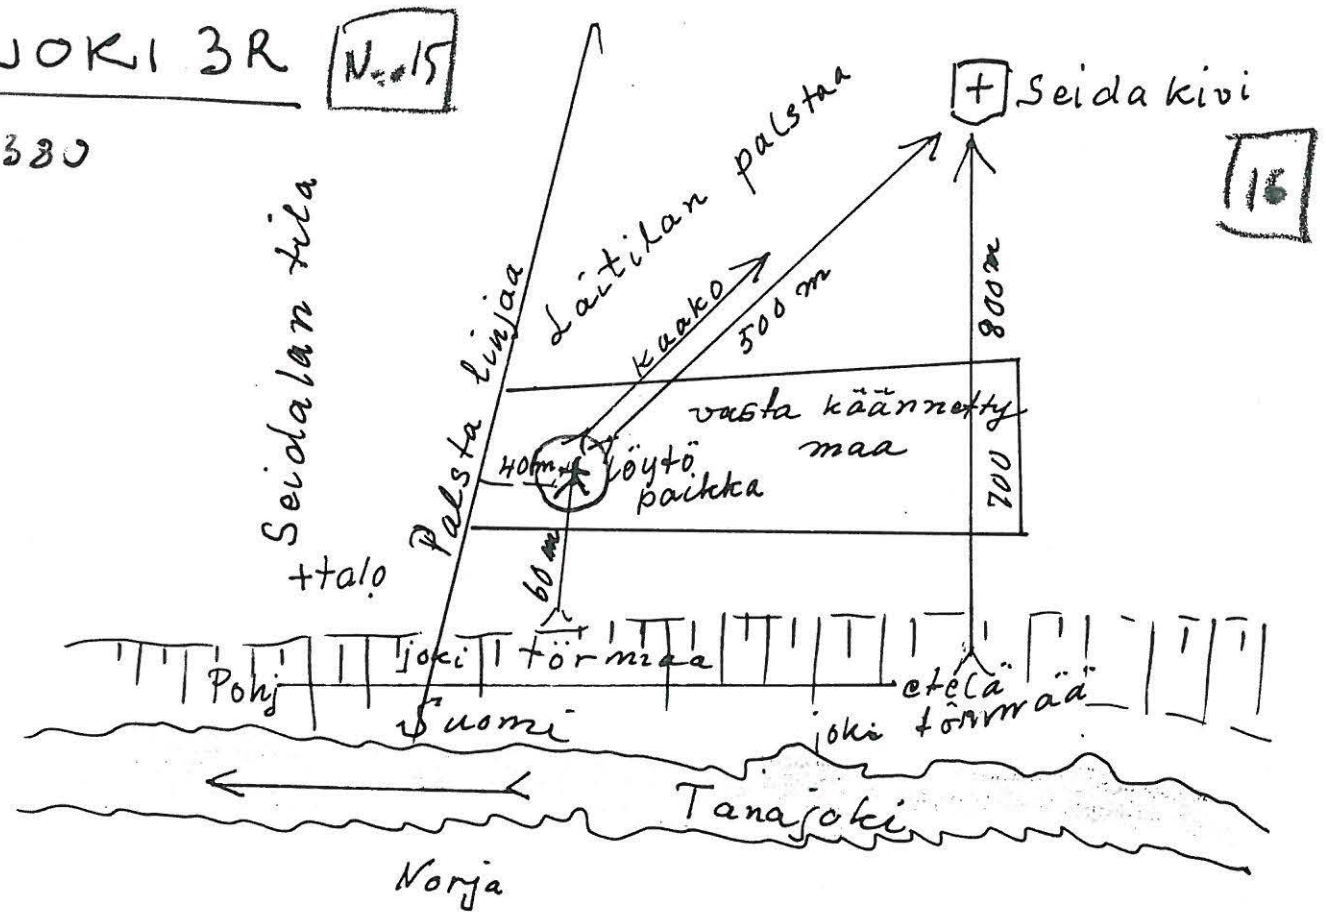 JOKI 3R
N:o 15
380
Seidakivi
16
Seidalan tila
Palsta linjaa
Laitilan palstaa
Kaako
500 m
800 m
vasta käännetty
maa
700
40 m
löytö
paikka
60 m
+talo
joki törmiaa
Pohj
etelä
Suomi
joki törmää
Tanajoki
Norja